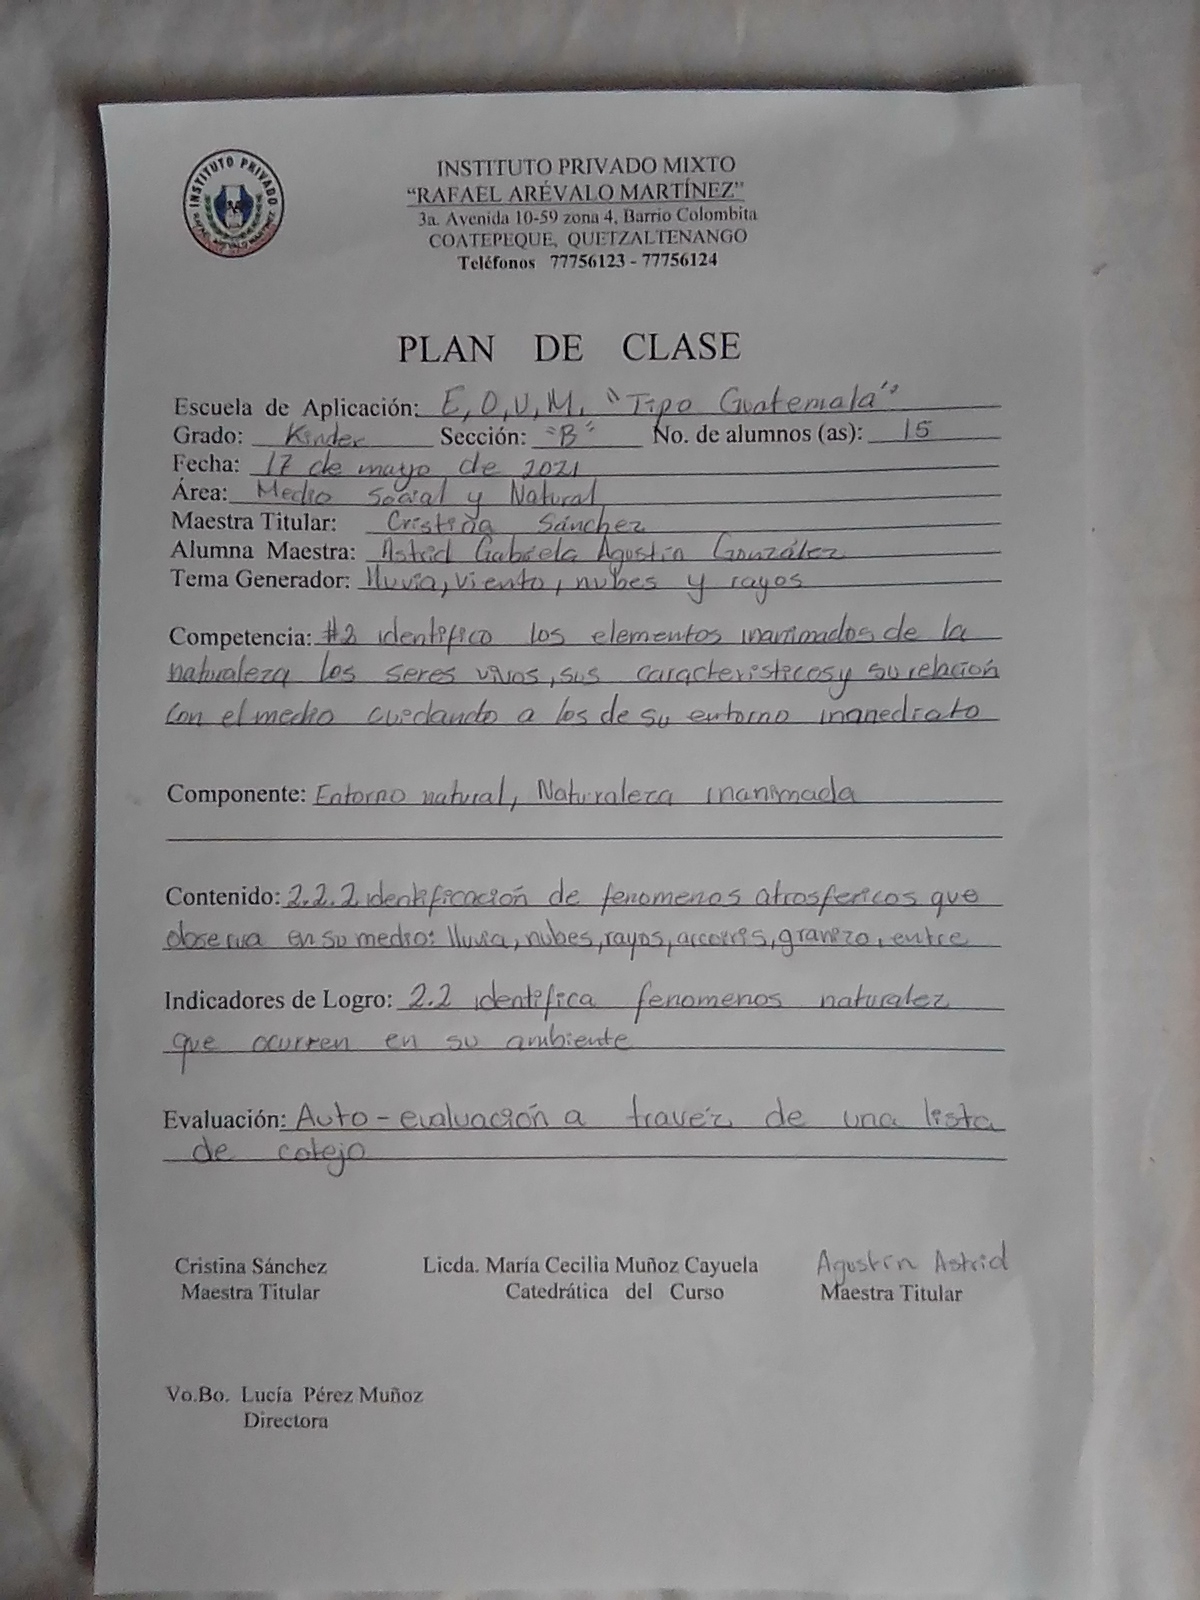 INSTITUTO PRIVADO
RAFAEL AREVALO MARTINEZ
INSTITUTO PRIVADO MIXTO
“RAFAEL ARÉVALO MARTÍNEZ”
3a. Avenida 10-59 zona 4, Barrio Colombita
COATEPEQUE, QUETZALTENANGO
Teléfonos 77756123 - 77756124
PLAN DE CLASE
Escuela de Aplicación: E,O,U,M, "Tipo Guatemala"
Grado: Kinder Sección: "B" No. de alumnos (as): 15
Fecha: 17 de mayo de 2021
Área: Medio Social y Natural
Maestra Titular: Cristina Sánchez
Alumna Maestra: Astrid Gabriela Agustín González
Tema Generador: lluvia, viento, nubes y rayos
Competencia: #2 identifico los elementos inanimados de la
naturaleza los seres vivos, sus caracteristicas y su relación
con el medio cuidando a los de su entorno inanediato
Componente: Entorno natural, Naturaleza inanimada
Contenido: 2.2.2 identificación de fenomenos atrosfericos que
observa en su medio: lluvia, nubes, rayos, granizo, entre
Indicadores de Logro: 2.2 identifica fenomenos naturalez
que ocurren en su ambiente
Evaluación: Auto-evaluación a travéz de una lista
de cotejo
Cristina Sánchez Licda. María Cecilia Muñoz Cayuela Agustín Astrid
Maestra Titular Catedrática del Curso Maestra Titular
Vo.Bo. Lucía Pérez Muñoz
Directora